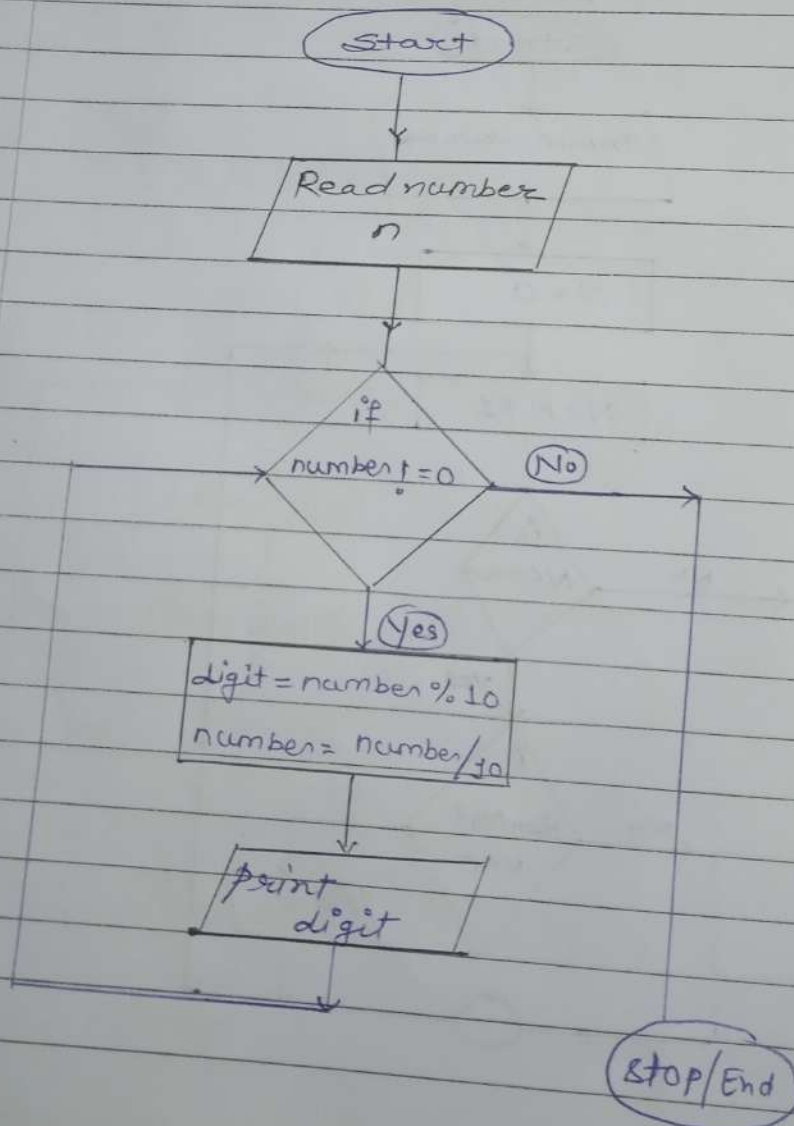 Start
Read number
n
if
number != 0
No
Yes
digit = number % 10
number = number/10
print
digit
Stop/End